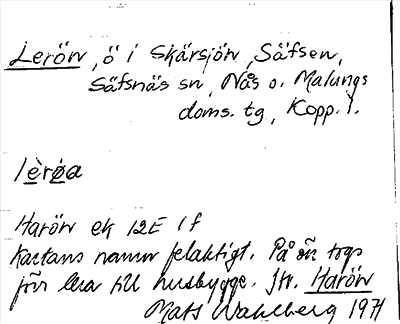 Lerön, ö i Skärsjön, Säfsen,
Säfsnäs sn, Nås o. Malungs
doms. tg, Kopp. l.
lè̱rø̱a
Harön ek 12E 1f
Kartans namn felaktigt. På ön togs
förr lera till husbygge. Jfr. Harön
Mats Wahlberg 1971